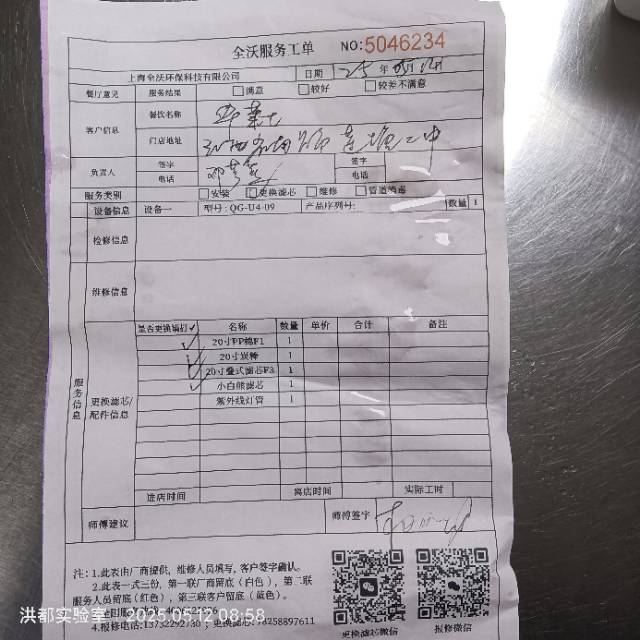 全沃服务工单 NO:5046234
上海全沃环保科技有限公司 日期 25 年
餐厅意见 服务结果 满意 较好 较差不满意
客户信息 餐饮名称
门店地址
负责人 签字 签字
电话 电话
服务类别 安装 更换滤芯 维修
设备信息 设备一 型号:QG-U4-09 产品序列号: 数量 1
检修信息
维修信息
服务信息
更换滤芯/配件信息
是否更换请打✓ 名称 数量 单价 合计 备注
✓ 20寸PP棉F1 1
✓ 20寸炭棒 1
✓ 20寸叠式滤芯F3 1
✓ 小白熊滤芯 1
紫外线灯管 1
进店时间 离店时间 实际工时
师傅建议 师傅签字
注:1.此表由厂商提供,维修人员填写,客户签字确认。
2.此表一式三份,第一联厂商留底(白色),第二联
服务人员留底(红色),第三联客户留底(蓝色)。
4.报修电话:13732292730;更换滤芯:18258897611
更换滤芯微信 报修微信
洪都实验室 2025.05.12 08:58